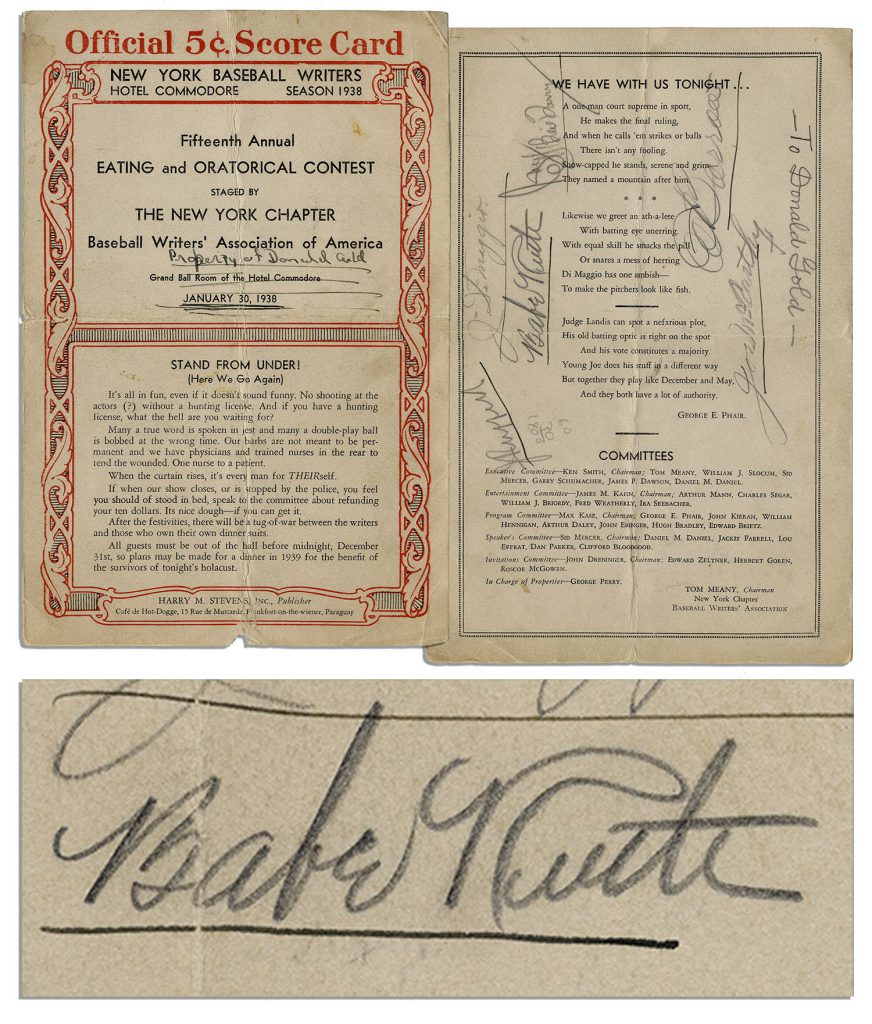 Official 5¢ Score Card
NEW YORK BASEBALL WRITERS
HOTEL COMMODORE SEASON 1938
Fifteenth Annual
EATING and ORATORICAL CONTEST
STAGED BY
THE NEW YORK CHAPTER
Baseball Writers' Association of America
Property of Donald Gold
Grand Ball Room of the Hotel Commodore
JANUARY 30, 1938
STAND FROM UNDER!
(Here We Go Again)
It's all in fun, even if it doesn't sound funny. No shooting at the
actors (?) without a hunting license. And if you have a hunting
license, what the hell are you waiting for?
Many a true word is spoken in jest and many a double-play ball
is bobbled at the wrong time. Our barbs are not meant to be per-
manent and we have physicians and trained nurses in the rear to
tend the wounded. One nurse to a patient.
When the curtain rises, it's every man for THEIRself.
If when our show closes, or is stopped by the police, you feel
you should of stood in bed, speak to the committee about refunding
your ten dollars. Its nice dough—if you can get it.
After the festivities, there will be a tug-of-war between the writers
and those who own their own dinner suits.
All guests must be out of the hall before midnight, December
31st, so plans may be made for a dinner in 1939 for the benefit of
the survivors of tonight's holacust.
HARRY M. STEVENS, INC., Publisher
Café de Hot-Dogge, 15 Rue de Mustarde, Frankfort-on-the-wiener, Paraguay
WE HAVE WITH US TONIGHT...
A one-man court supreme in sport,
He makes the final ruling,
And when he calls 'em strikes or balls
There isn't any fooling.
Snow-capped he stands, serene and grim—
They named a mountain after him.
* * *
Likewise we greet an ath-a-lete
With batting eye unerring.
With equal skill he smacks the pill
Or snares a mess of herring
Di Maggio has one ambish—
To make the pitchers look like fish.
Judge Landis can spot a nefarious plot,
His old batting optic is right on the spot
And his vote constitutes a majority.
Young Joe does his stuff in a different way
But together they play like December and May,
And they both have a lot of authority.
GEORGE E. PHAIR.
—To Donald Gold—
Babe Ruth
COMMITTEES
Executive Committee—KEN SMITH, Chairman; TOM MEANY, WILLIAM J. SLOCUM, SID
MERCER, GARRY SCHUMACHER, JAMES P. DAWSON, DANIEL M. DANIEL.
Entertainment Committee—JAMES M. KAHN, Chairman; ARTHUR MANN, CHARLES SEGAR,
WILLIAM J. BRIORDY, FRED WEATHERLY, IRA SEEBACHER.
Program Committee—MAX KASE, Chairman; GEORGE E. PHAIR, JOHN KIERAN, WILLIAM
HENNIGAN, ARTHUR DALEY, JOHN EBINGER, HUGH BRADLEY, EDWARD BRIETZ.
Speaker's Committee—SID MERCER, Chairman; DANIEL M. DANIEL, JACKIE FARRELL, LOU
EFFRAT, DAN PARKER, CLIFFORD BLOODGOOD.
Invitations Committee—JOHN DREBINGER, Chairman; EDWARD ZELTNER, HERBERT GOREN,
ROSCOE MCGOWEN.
In Charge of Properties—GEORGE PERRY.
TOM MEANY, Chairman
New York Chapter
BASEBALL WRITERS' ASSOCIATION
Babe Ruth